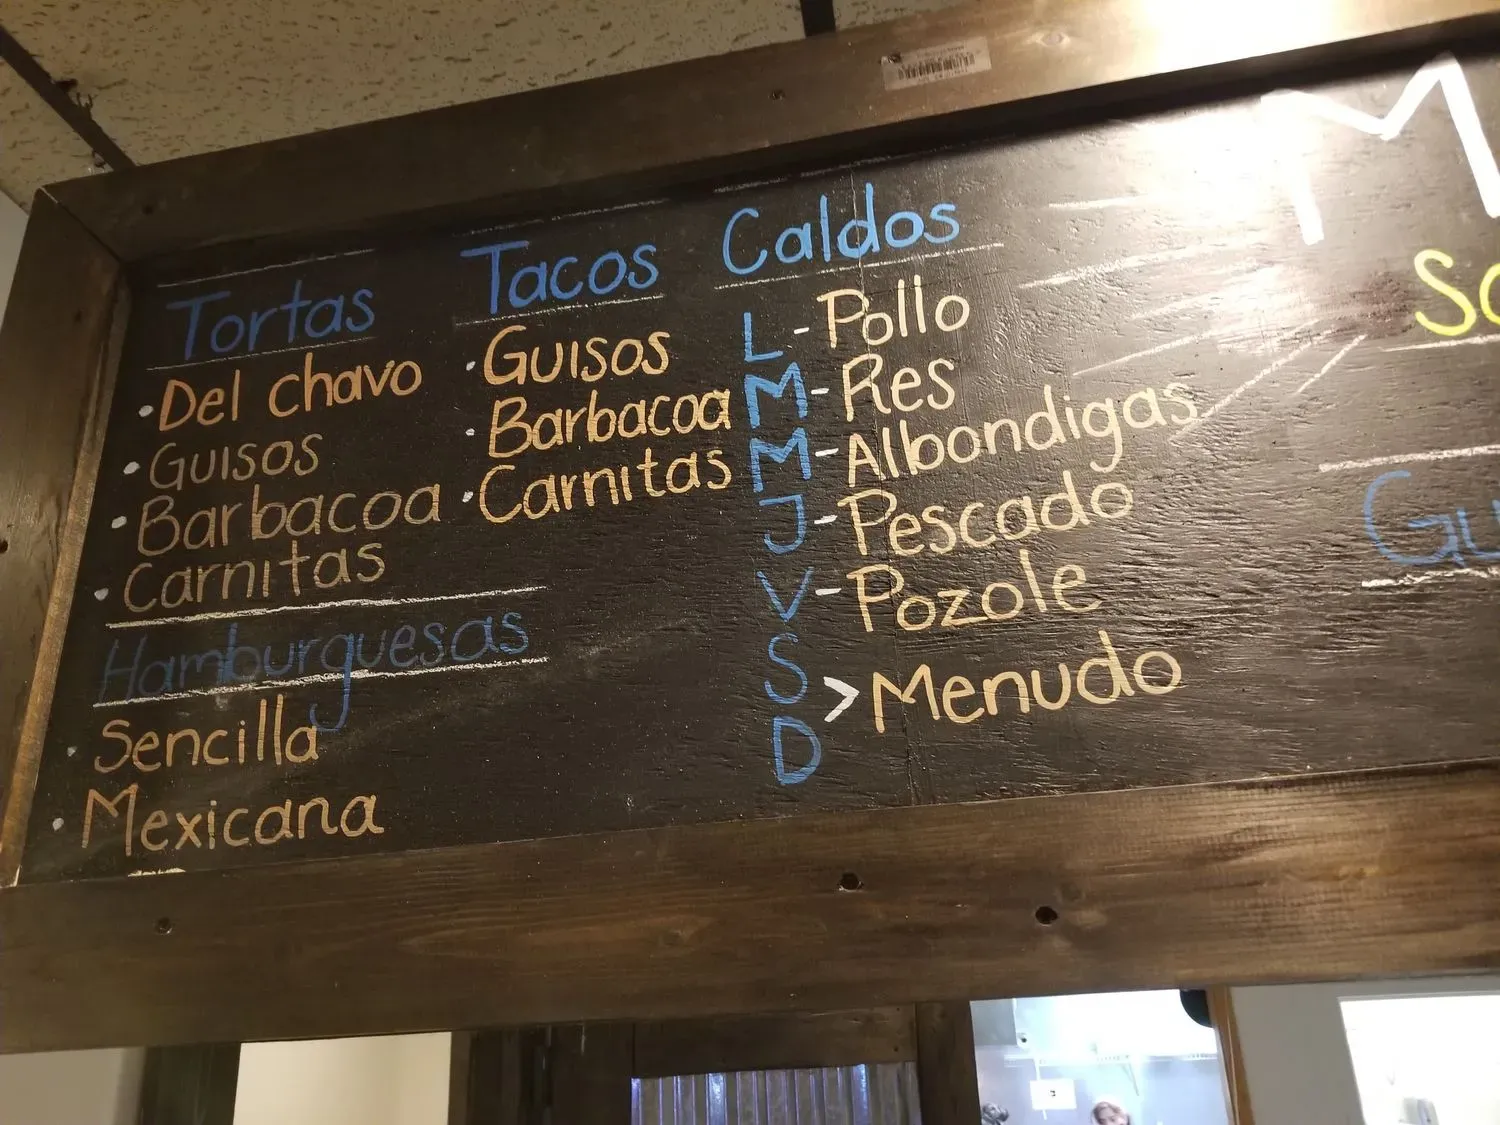 Tortas
• Del chavo
• Guisos
• Barbacoa
• Carnitas
Hamburguesas
• Sencilla
• Mexicana
Tacos
• Guisos
• Barbacoa
• Carnitas
Caldos
L - Pollo
M - Res
M - Albondigas
J - Pescado
V - Pozole
S
D > Menudo